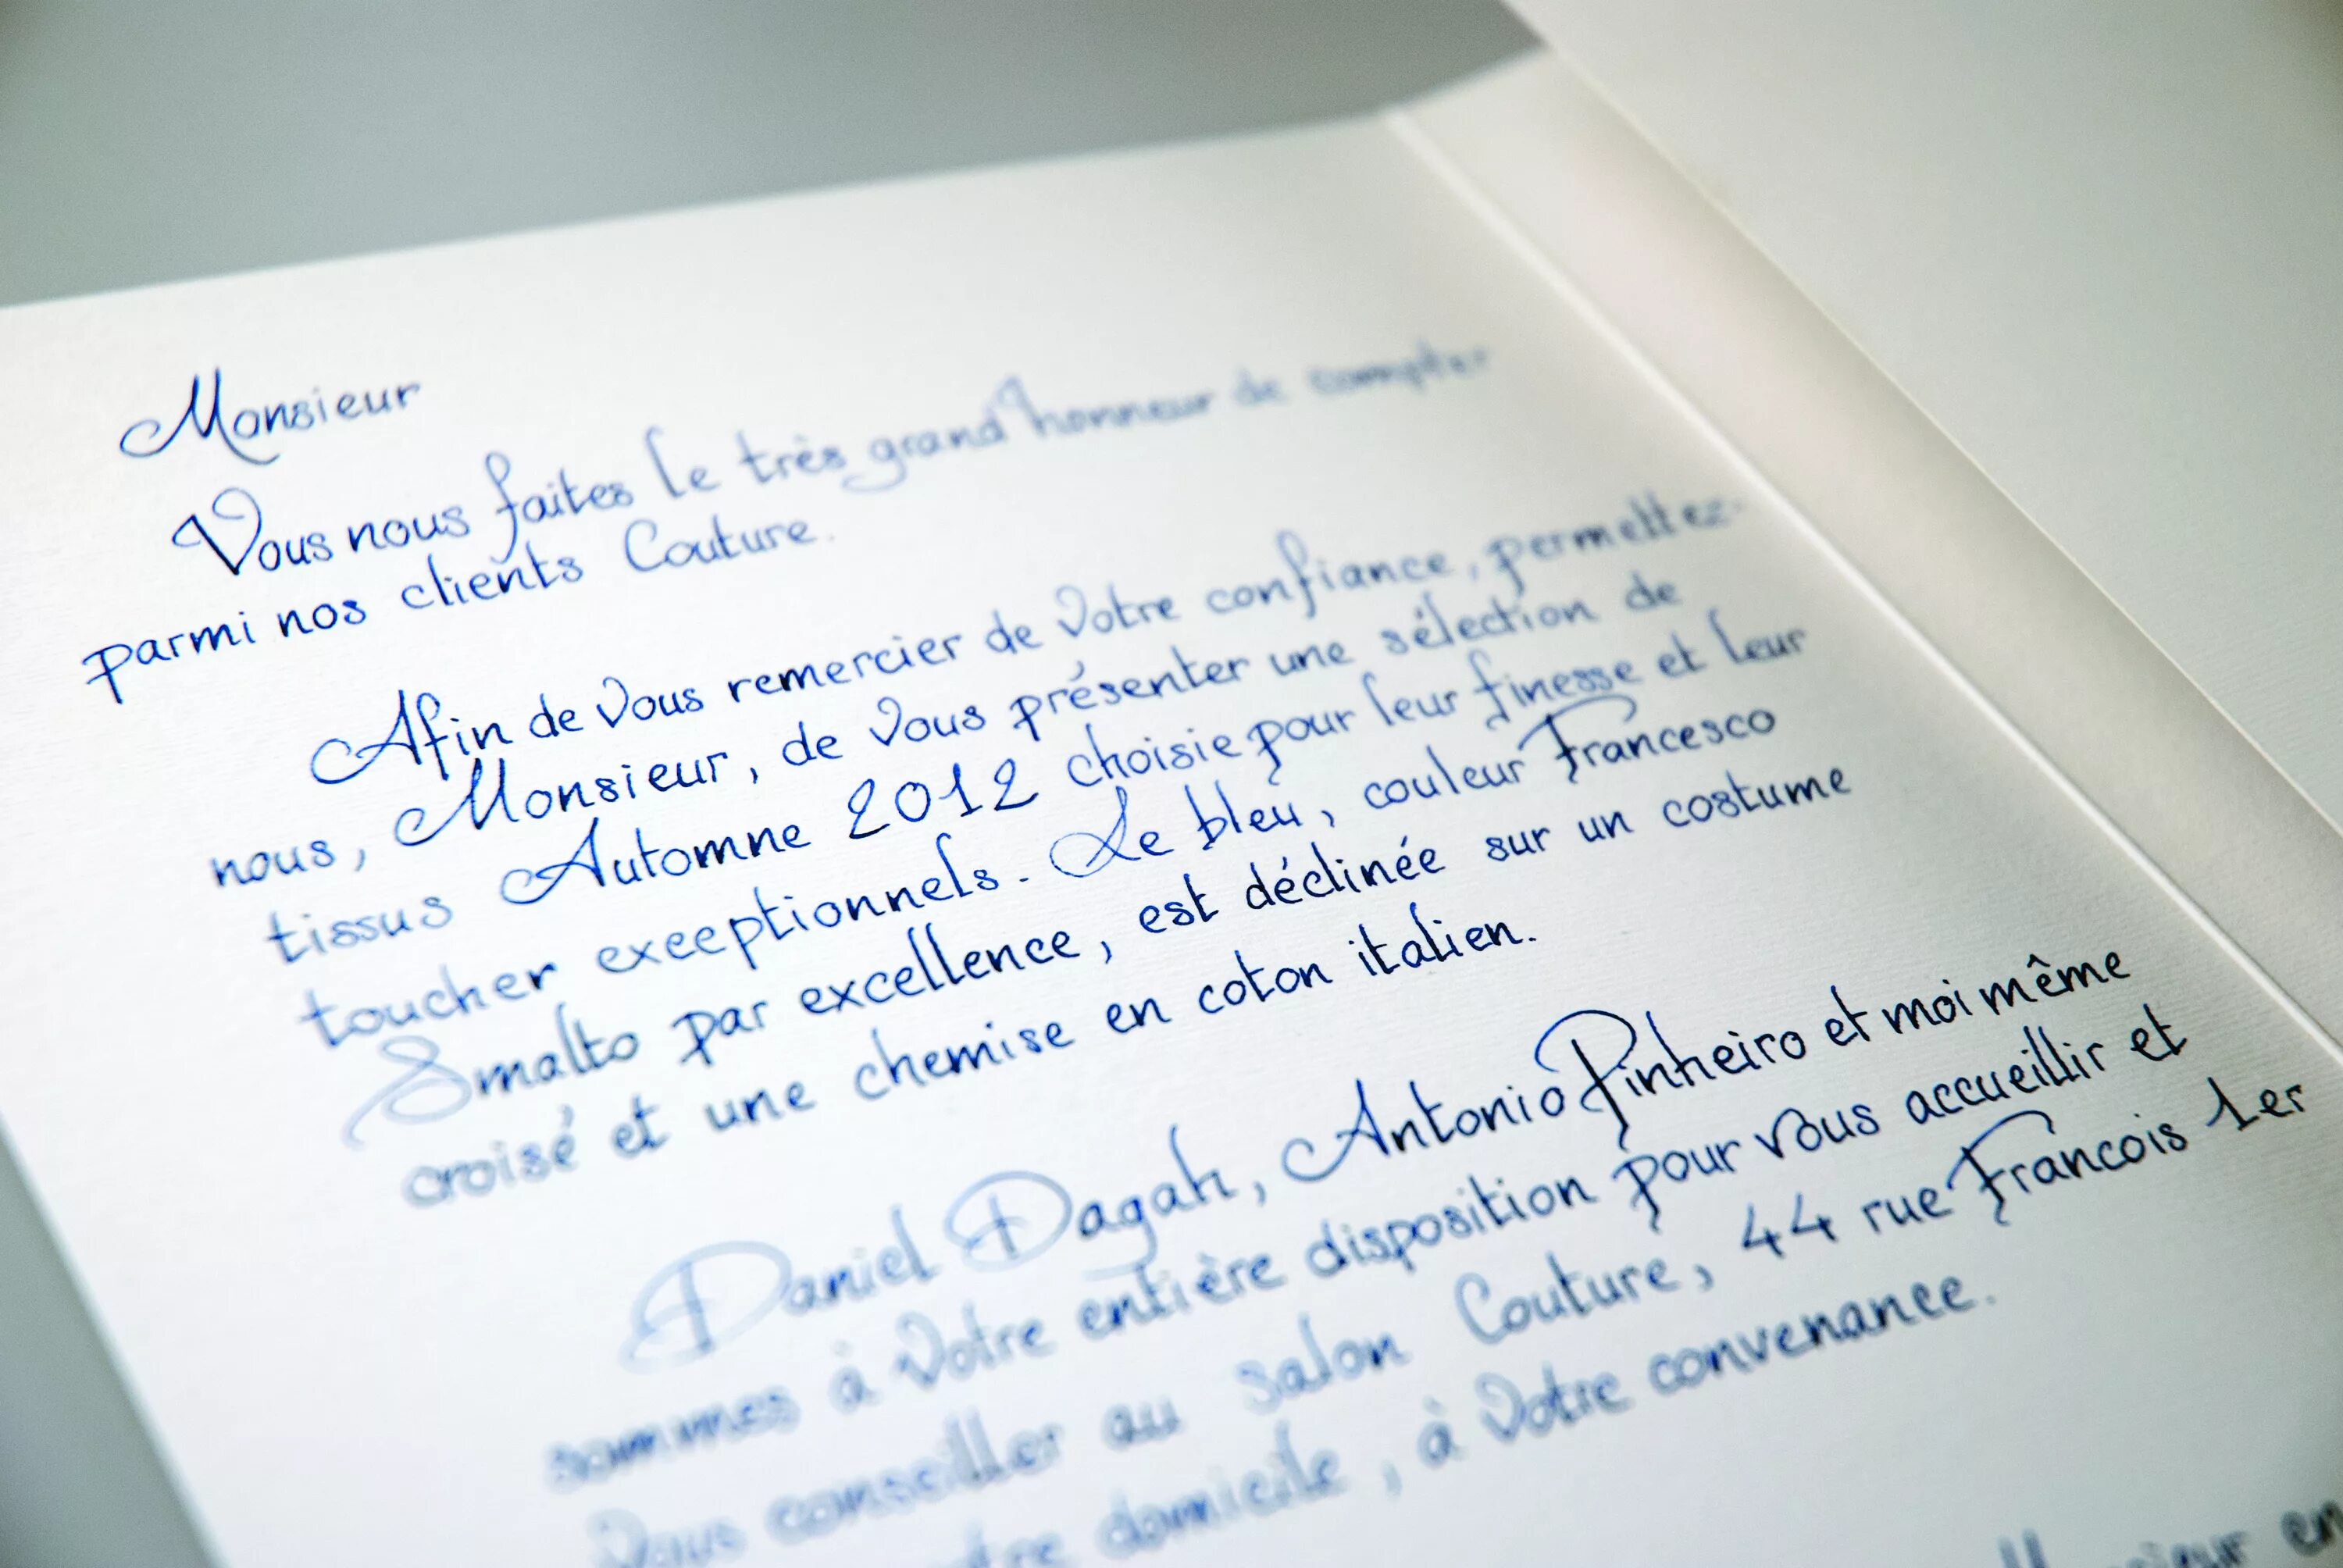 Monsieur
Vous nous faites le très grand honneur de compter
parmi nos clients Couture.
Afin de Vous remercier de Votre confiance, permettez-
nous, Monsieur, de Vous présenter une sélection de
tissus Automne 2012 choisie pour leur finesse et leur
toucher exceptionnels. Le bleu, couleur Francesco
Smalto par excellence, est déclinée sur un costume
croisé et une chemise en coton italien.
Daniel Dagah, Antonio Pinheiro et moi même
sommes à Votre entière disposition pour Vous accueillir et
Vous conseiller au salon Couture, 44 rue Francois 1er
domicile, à Votre convenance.
en